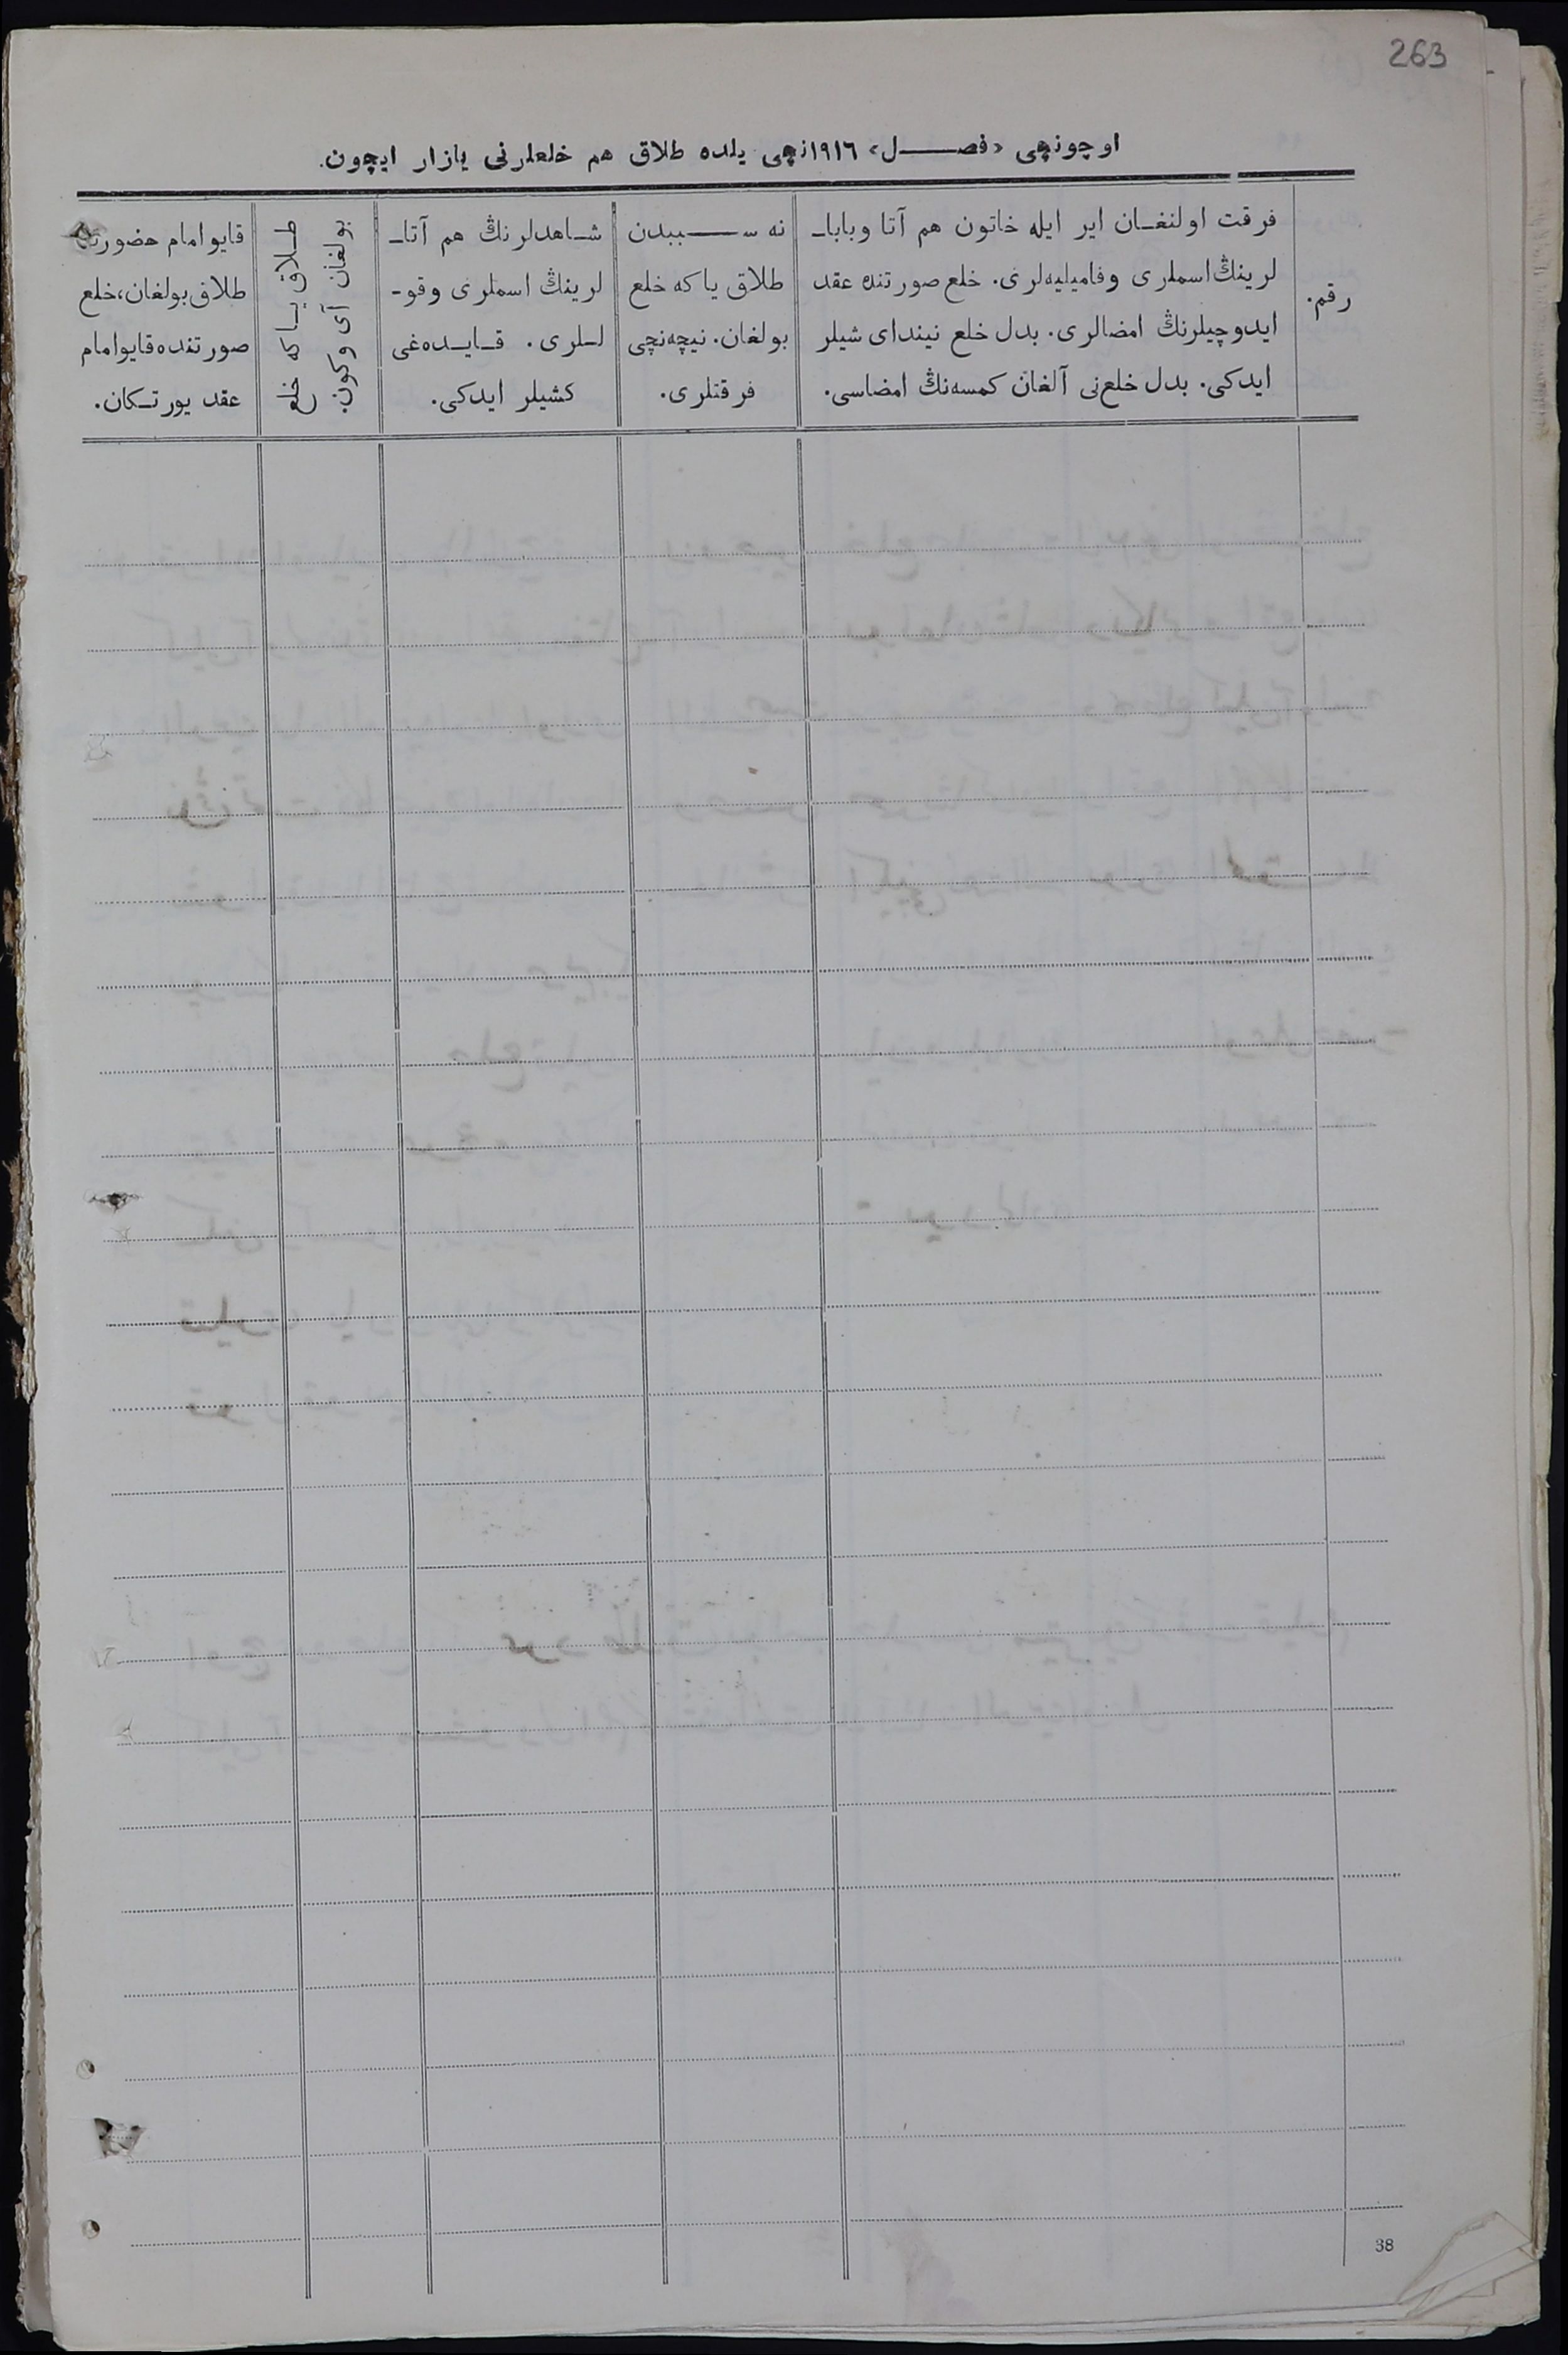 263
اوچونچی «فصل» ١٩١٦نچی یلده طلاق هم خلعلرنی یازار ایچون.
رقم.
فرقت اولنغان ایر ایله خاتون هم آتا وبابا-
لرینڭ اسملری وفامیلیه‌لری. خلع صورتنده عقد
ایدوچیلرنڭ امضالری. بدل خلع نیندای شیلر
ایدکی. بدل خلع‌نی آلغان کمسه‌نڭ امضاسی.
نه سببدن
طلاق یاکه خلع
بولغان. نیچه‌نچی
فرقتلری.
شاهدلرنڭ هم آتا-
لرینڭ اسملری وقو-
للری. قایده‌غی
کشیلر ایدکی.
طلاق یاکه خلع
بولغان آی وکون.
قایو امام حضورنده
طلاق بولغان، خلع
صورتنده قایو امام
عقد یورتکان.
38